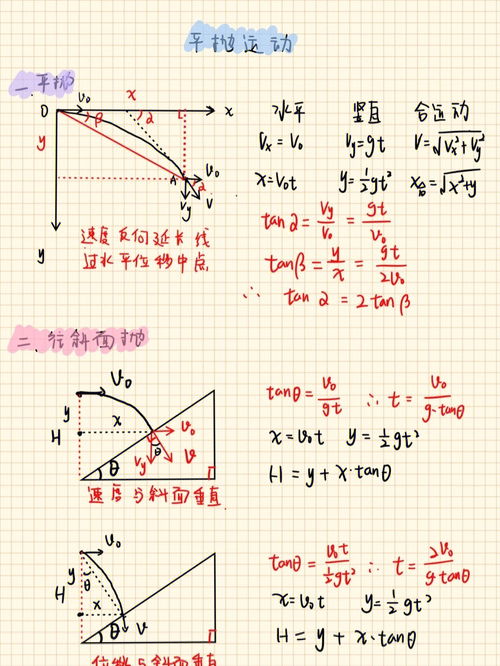 平抛运动
一.平抛
O v₀ x x
β α
y
A v₀
α
Vy V
y
速度反向延长线
过水平位移中点
水平 竖直 合运动
Vx = V₀ Vy = gt V = √(Vx²+Vy²)
x = V₀t y = ½gt² x合 = √(x²+y)
tanα = Vy/V₀ = gt/V₀
tanβ = y/x = gt/2V₀
∴ tanα = 2tanβ
二、往斜面抛
V₀
y
H x v₀
Vy θ V
θ
速度与斜面垂直
tanθ = V₀/gt ∴ t = V₀/g·tanθ
x = V₀t y = ½gt²
H = y + x·tanθ
V₀
y θ
H x
θ V
位移与斜面垂直
tanθ = V₀t/½gt² ∴ t = 2V₀/g·tanθ
x = V₀t y = ½gt²
H = y + x·tanθ